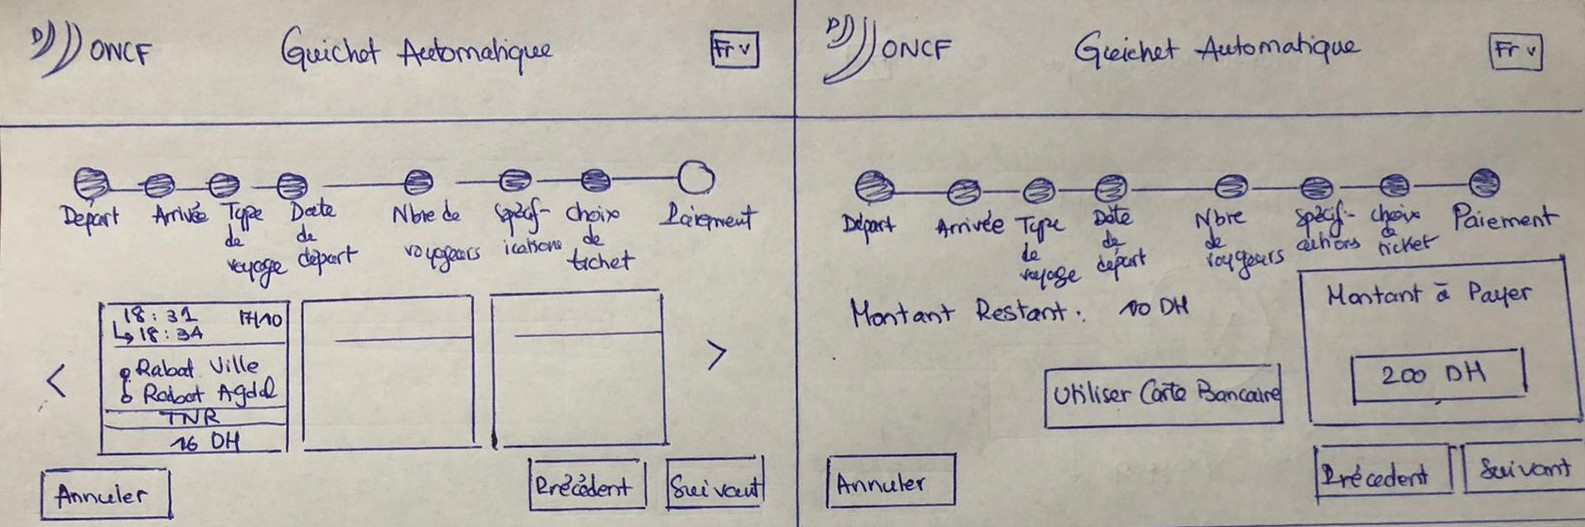 ONCF Guichet Automatique Fr v
Départ Arrivée Type de voyage Date de départ Nbre de voyageurs Spécifications Choix de ticket Paiement
<
18:31 17/10
↳ 18:34
Rabat Ville
Rabat Agdal
TNR
16 DH
>
Annuler Précédent Suivant
ONCF Guichet Automatique Fr v
Départ Arrivée Type de voyage Date de départ Nbre de voyageurs Spécifications choix de ticket Paiement
Montant Restant : 10 DH
Montant à Payer
200 DH
Utiliser Carte Bancaire
Annuler Précedent Suivant